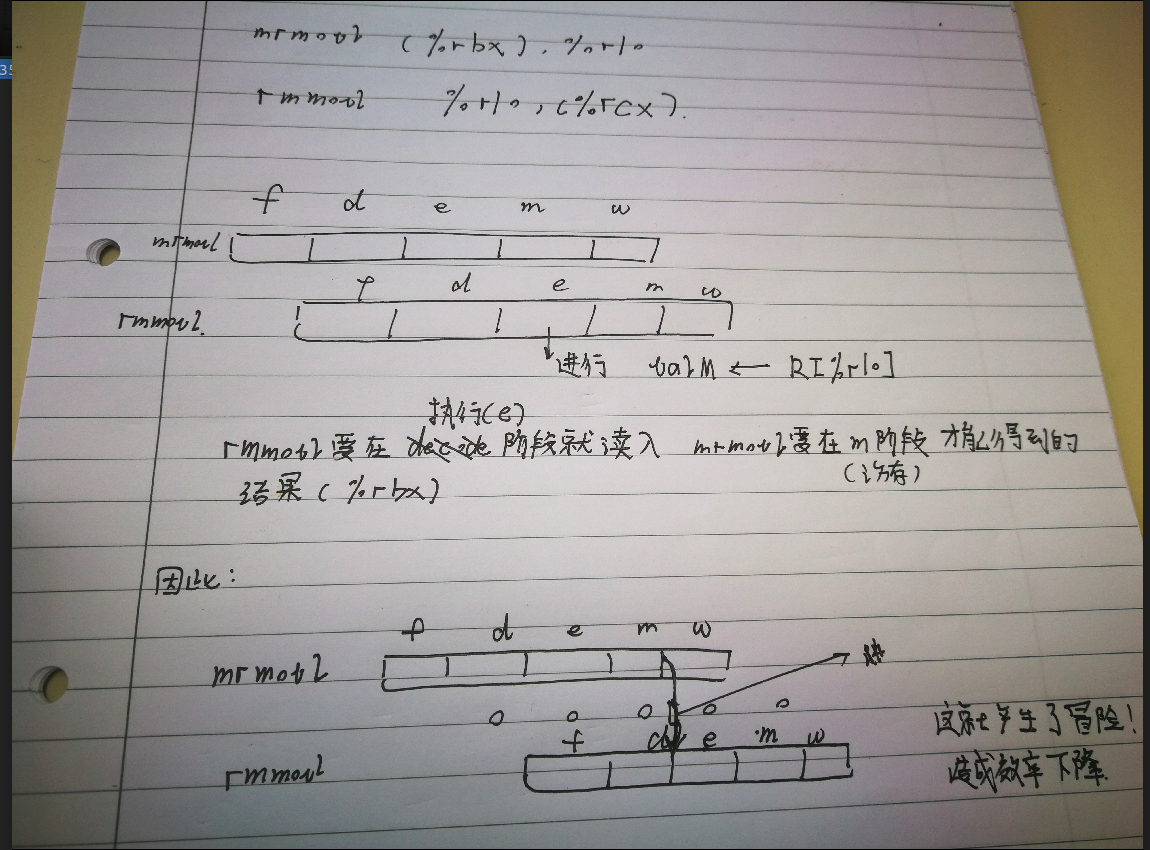 mrmovl (%rbx), %r10
rmmovl %r10, (%rcx).
f d e m w
mrmovl
f d e m w
rmmovl.
进行 valM ← R[%r10]
执行(e)
rmmovl要在 decode 阶段就读入 mrmovl要在m阶段才能得到的
(访存)
结果(%rbx)
因此:
f d e m w
mrmovl
f d e m w
rmmovl
这就产生了冒险!
造成效率下降.